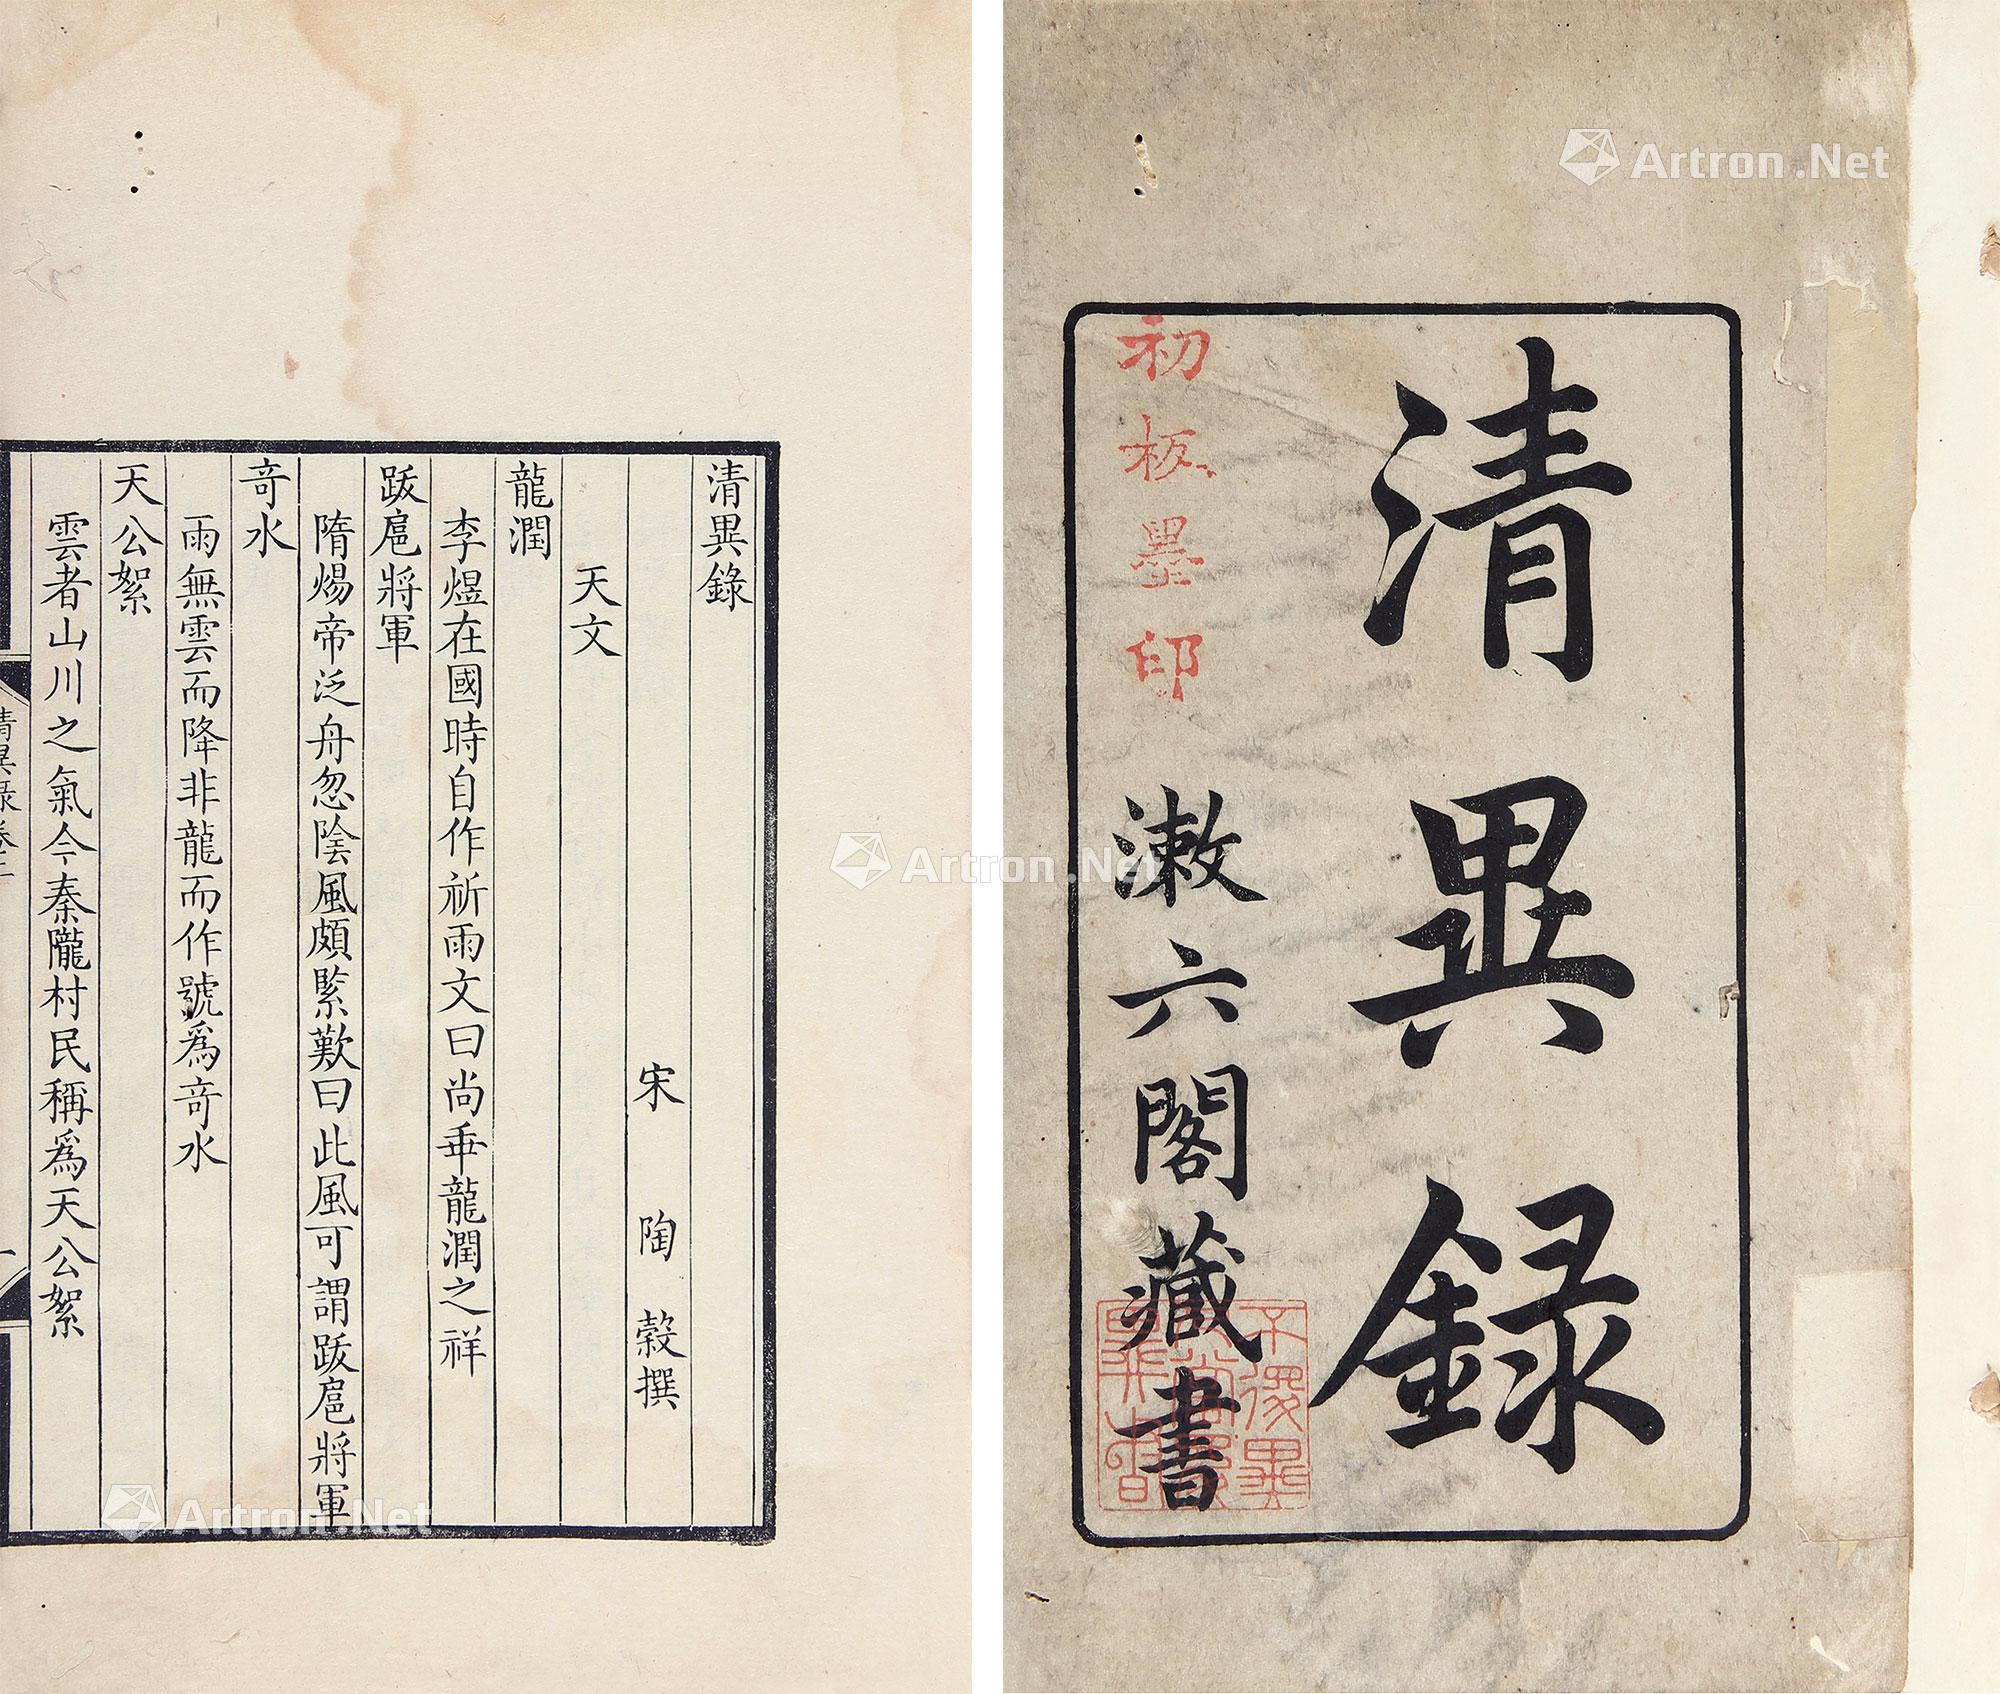 清異録
漱六閣藏書
初板墨印
清異錄
宋 陶 穀撰
天文
龍潤
李煜在國時自作祈雨文曰尚垂龍潤之祥
跋扈將軍
隋煬帝泛舟忽陰風頗緊歎曰此風可謂跋扈將軍
奇水
雨無雲而降非龍而作號爲奇水
天公絮
雲者山川之氣今秦隴村民稱爲天公絮
清異錄卷上
一
Artron.Net
Artron.Net
Artron.Net